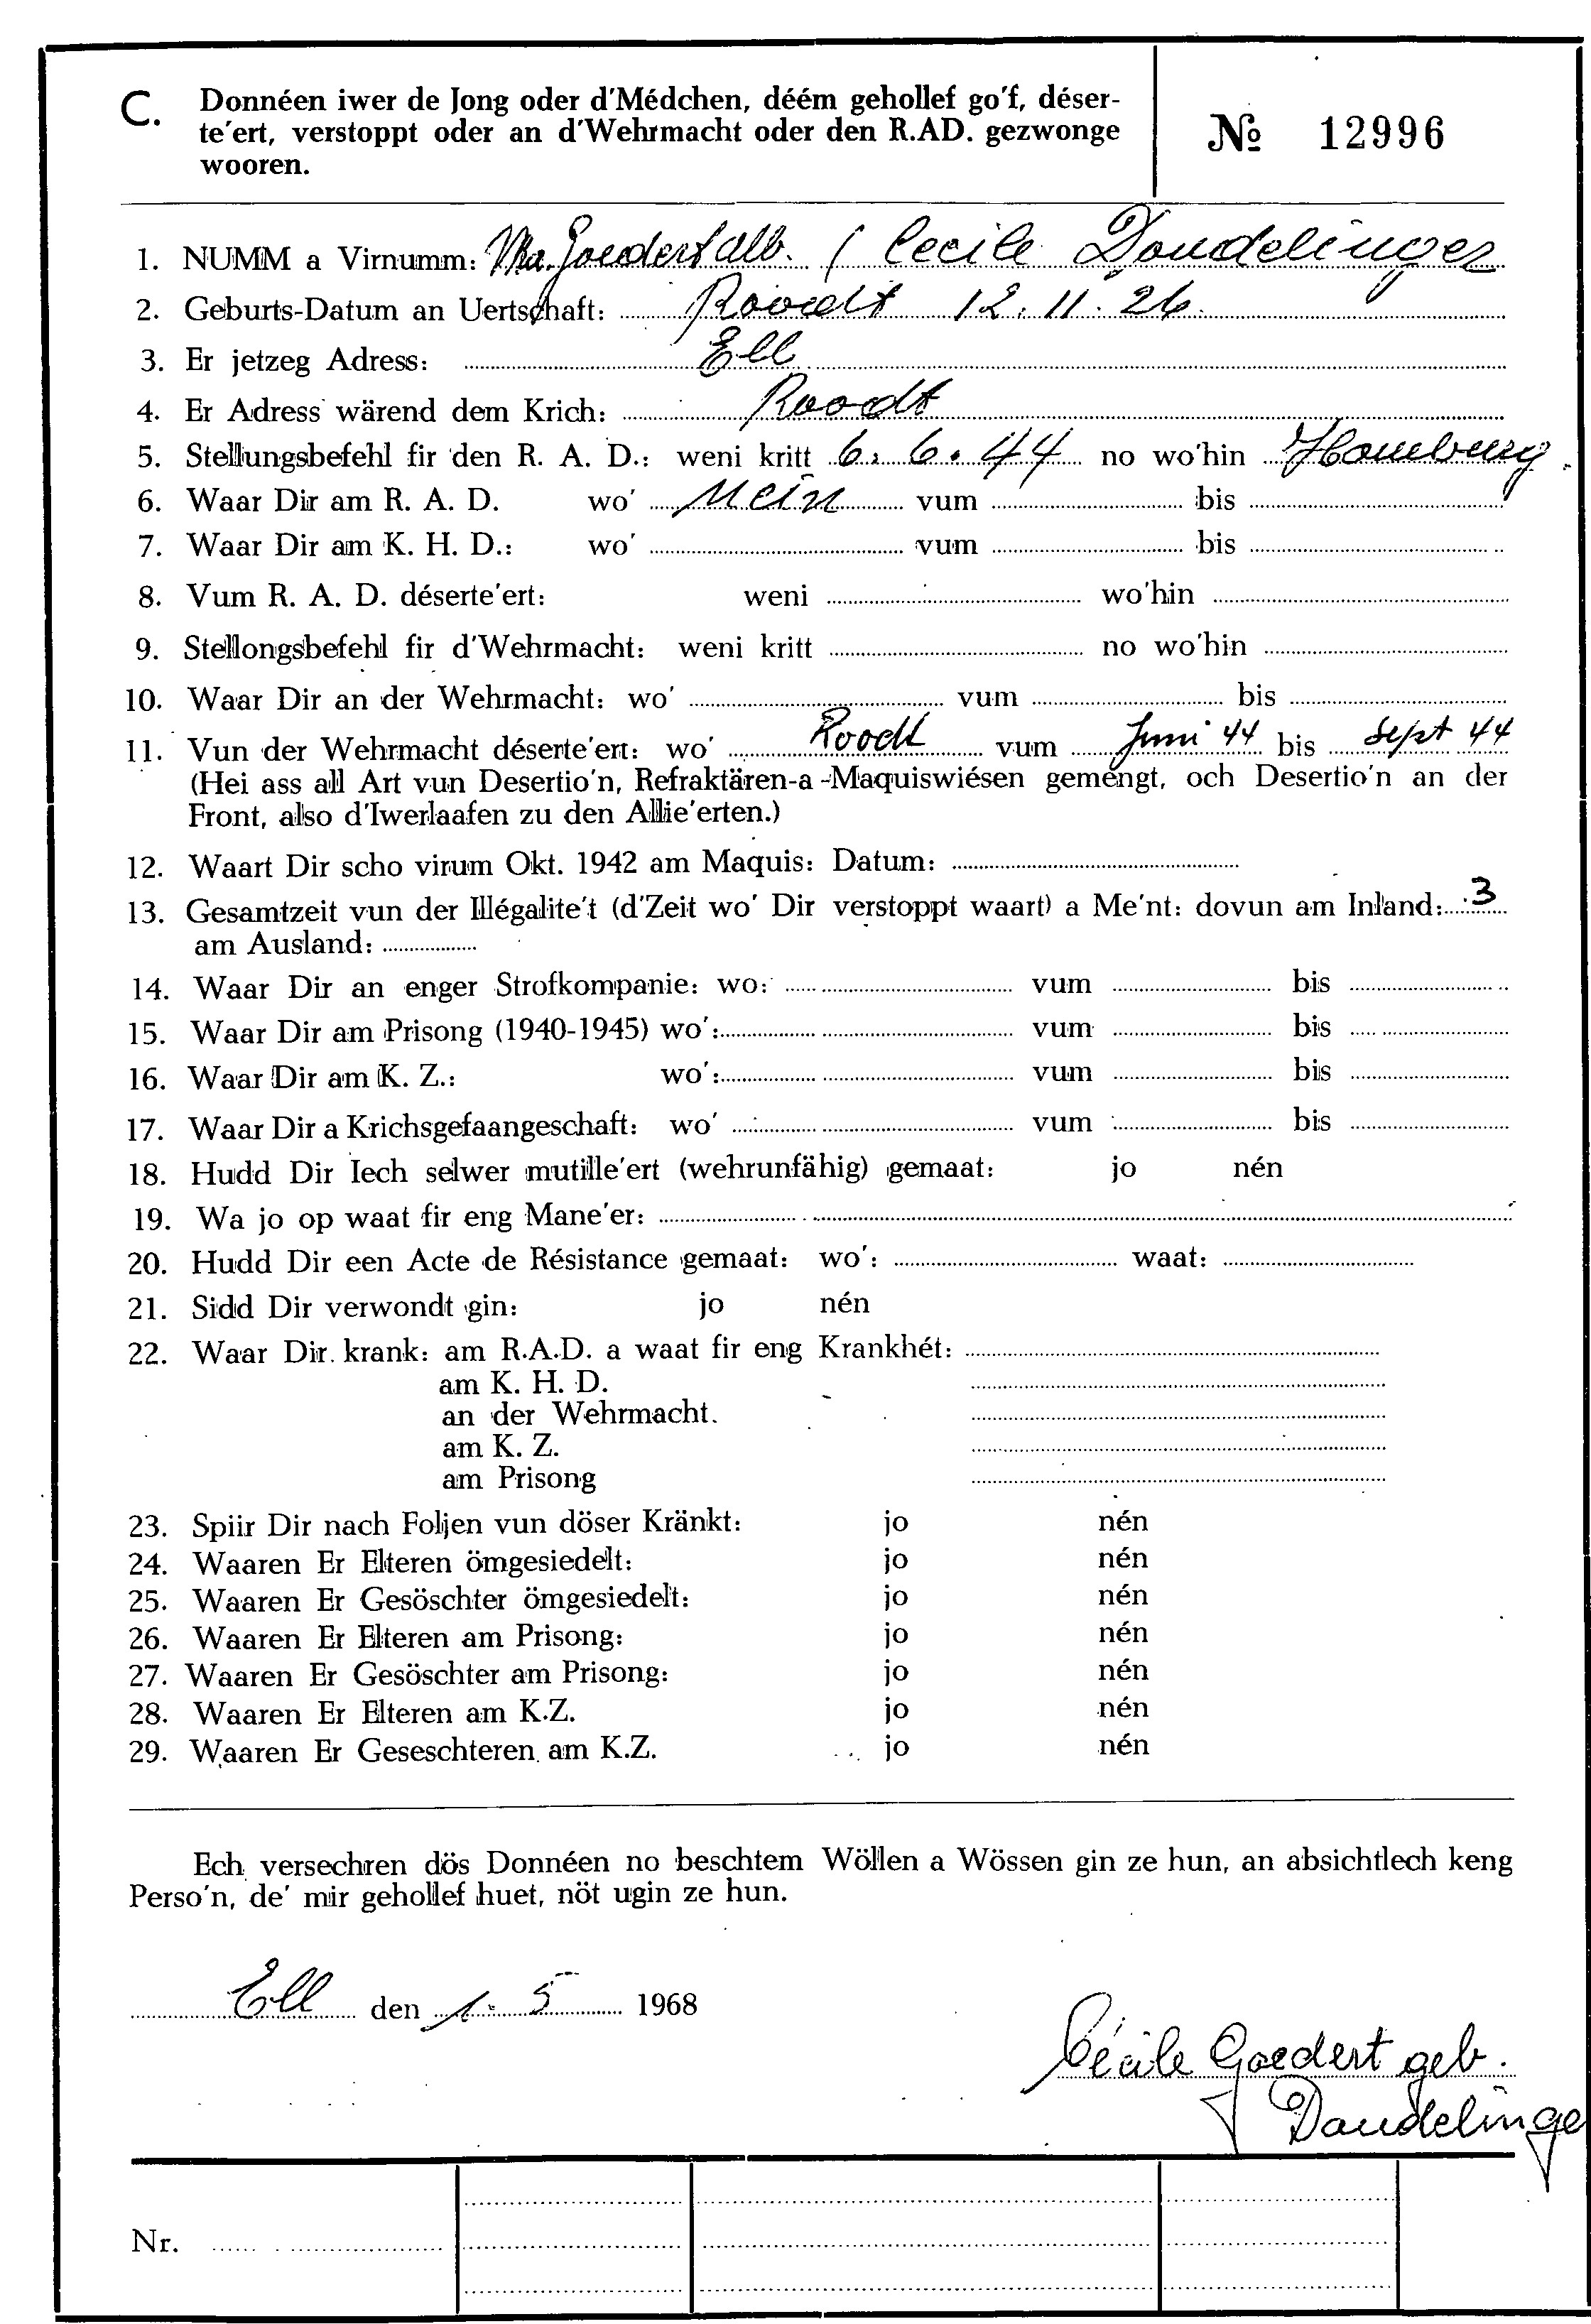 C. Donnéen iwer de Jong oder d'Médchen, déém gehollef go'f, déser-
te'ert, verstoppt oder an d'Wehrmacht oder den R.AD. gezwonge
wooren.
№ 12996
1. NUMM a Virnumm: Goedert Alb. / Cecile Daudelinger
2. Geburts-Datum an Uertschaft: Roodt 12.11.26.
3. Er jetzeg Adress: Ell
4. Er Adress wärend dem Krich: Roodt
5. Stellungsbefehl fir den R. A. D.: weni kritt 6. 6. 44 no wo'hin Homburg.
6. Waar Dir am R. A. D. wo' Nein vum bis
7. Waar Dir am K. H. D.: wo' vum bis
8. Vum R. A. D. déserte'ert: weni wo'hin
9. Stellongsbefehl fir d'Wehrmacht: weni kritt no wo'hin
10. Waar Dir an der Wehrmacht: wo' vum bis
11. Vun der Wehrmacht déserte'ert: wo' Roodt vum Juni 44 bis Sept 44
(Hei ass all Art vun Desertio'n, Refraktären-a-Maquiswiésen gemengt, och Desertio'n an der
Front, also d'Iwerlaafen zu den Allie'erten.)
12. Waart Dir scho virum Okt. 1942 am Maquis: Datum:
13. Gesamtzeit vun der Illégalite't (d'Zeit wo' Dir verstoppt waart) a Me'nt: dovun am Inland: 3
am Ausland:
14. Waar Dir an enger Strofkompanie: wo: vum bis
15. Waar Dir am Prisong (1940-1945) wo': vum bis
16. Waar Dir am K. Z.: wo': vum bis
17. Waar Dir a Krichsgefaangeschaft: wo' vum bis
18. Hudd Dir Iech selwer mutille'ert (wehrunfähig) gemaat: jo nén
19. Wa jo op waat fir eng Mane'er:
20. Hudd Dir een Acte de Résistance gemaat: wo': waat:
21. Sidd Dir verwondt gin: jo nén
22. Waar Dir krank: am R.A.D. a waat fir eng Krankhét:
am K. H. D.
an der Wehrmacht.
am K. Z.
am Prisong
23. Spiir Dir nach Foljen vun döser Kränkt: jo nén
24. Waaren Er Elteren ömgesiedelt: jo nén
25. Waaren Er Gesöschter ömgesiedelt: jo nén
26. Waaren Er Elteren am Prisong: jo nén
27. Waaren Er Gesöschter am Prisong: jo nén
28. Waaren Er Elteren am K.Z. jo nén
29. Waaren Er Geseschteren am K.Z. jo nén
Ech versechren dös Donnéen no beschtem Wöllen a Wössen gin ze hun, an absichtlech keng
Perso'n, de' mir gehollef huet, nöt ugin ze hun.
Ell den 1. 5 1968
Cécile Goedert geb.
Daudelinge
Nr.